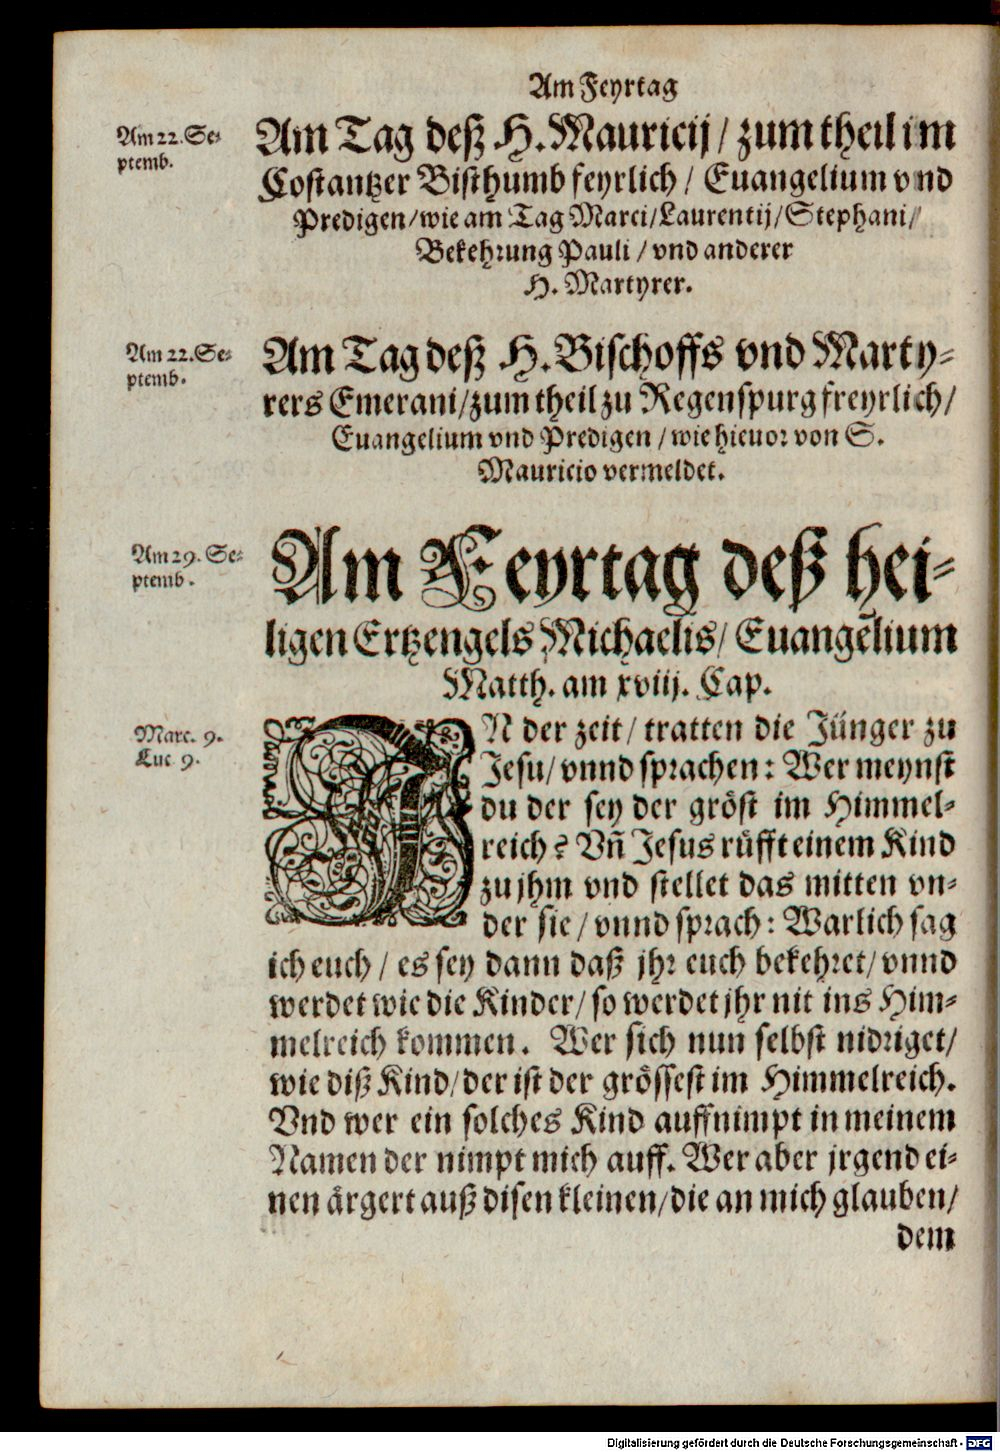 Am Feyrtag
Am 22. Se-
ptemb.
Am Tag deß H. Mauricij / zum theil im
Costantzer Bisthumb feyrlich / Euangelium vnd
Predigen / wie am Tag Marci / Laurentij / Stephani /
Bekehrung Pauli / vnd anderer
H. Martyrer.
Am 22. Se-
ptemb.
Am Tag deß H. Bischoffs vnd Marty-
rers Emerani / zum theil zu Regenspurg freyrlich /
Euangelium vnd Predigen / wie hieuor von S.
Mauricio vermeldet.
Am 29. Se-
ptemb.
Am Feyrtag deß hei-
ligen Ertzengels Michaelis / Euangelium
Matth. am xviij. Cap.
Marc. 9.
Luc 9.
IN der zeit / tratten die Jünger zu
Jesu / vnnd sprachen: Wer meynst
du der sey der gröst im Himmel-
reich? Vñ Jesus rüfft einem Kind
zu jhm vnd stellet das mitten vn-
der sie / vnnd sprach: Warlich sag
ich euch / es sey dann daß jhr euch bekehret / vnnd
werdet wie die Kinder / so werdet jhr nit ins Him-
melreich kommen. Wer sich nun selbst nidriget /
wie diß Kind / der ist der grössest im Himmelreich.
Vnd wer ein solches Kind auffnimpt in meinem
Namen der nimpt mich auff. Wer aber jrgend ei-
nen ärgert auß disen kleinen / die an mich glauben /
dem
Digitalisierung gefördert durch die Deutsche Forschungsgemeinschaft - DFG